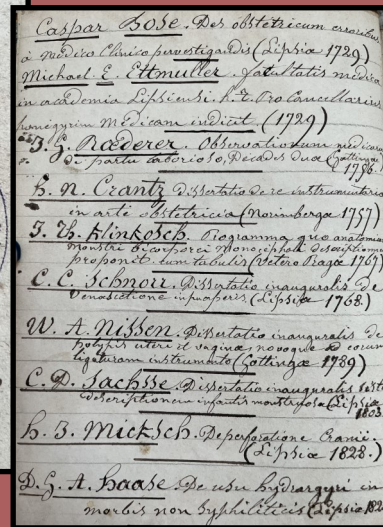 Caspar Bose. Des obstetricum erroribus
à medico clinico pervestigandis (Lipsiæ 1729)
Michael. E. Ettmuller. facultatis medicæ
in academia Lipsiensi h. t. Pro Cancellarius
panegyrim Medicam indicit (1729)
J. G. Rœderer. Observationum medicarum
de partu laborioso, Decades duæ (Gottingæ
1756.)
H. N. Crantz Dissertatio de re instrumentaria
in arte obstetricia (Norimbergæ 1757)
J. Th. Klinkosch. Programma quo anatomiam
monstri bicorporei monocephali descriptionem
proponit cum tabulis (Vetero Pragæ 1767)
C. C. Schnorr. Dissertatio inauguralis de
Venæsectione in puerperis (Lipsiæ 1768.)
W. A. Nissen. Dissertatio inauguralis de
polypis uteri et vaginæ novoque ad eorum
ligaturam instrumento (Gottingæ 1789)
C. D. Sachsse Dissertatio inauguralis sistens
descriptionem infantis monstrosa (Lipsiæ
1803
H. J. Micksch. De perforatione Cranii.
(Lipsiæ 1828.)
D. G. A. Haase De usu hydrargyri in
morbis non syphiliticis (Lipsiæ 182